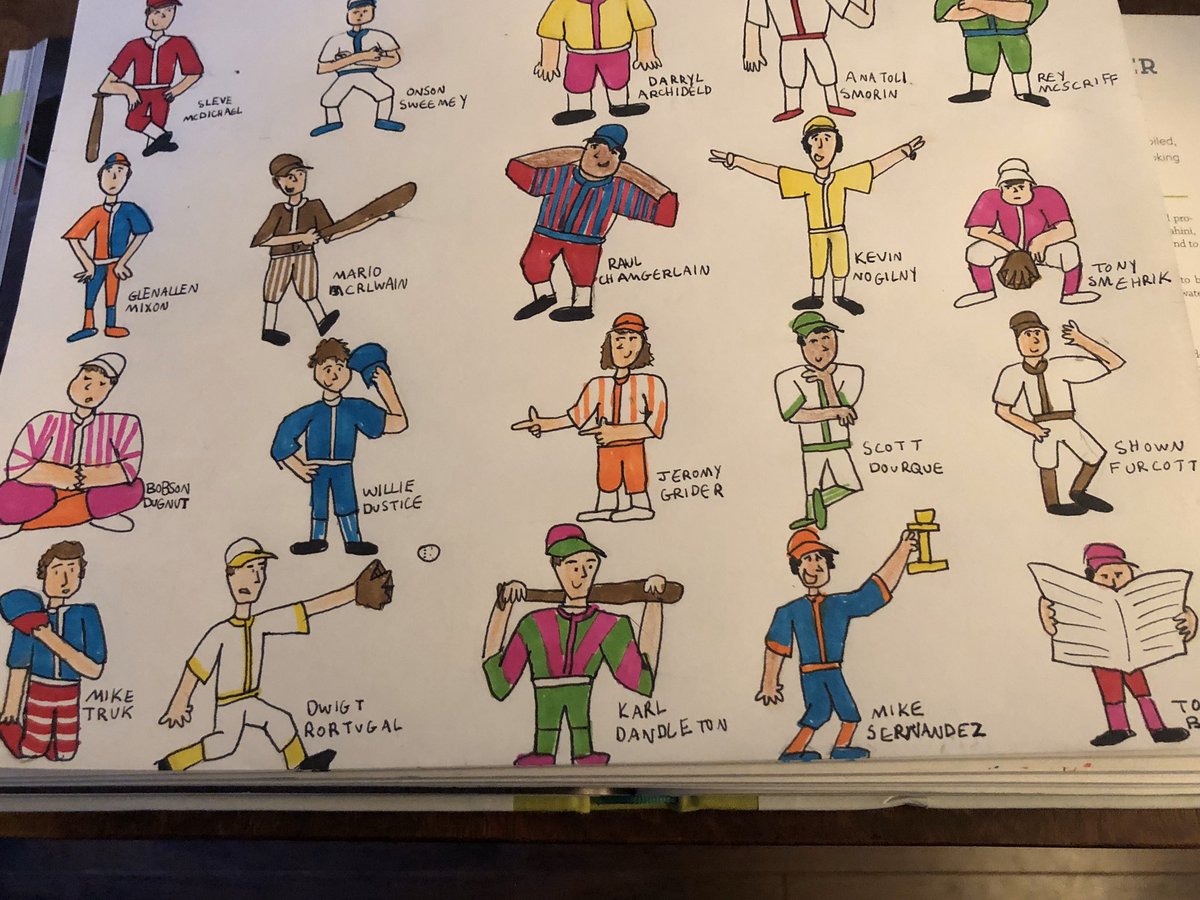 SLEVE
MCDICHAEL
ONSON
SWEEMEY
DARRYL
ARCHIDELD
ANATOLI
SMORIN
REY
MCSCRIFF
GLENALLEN
MIXON
MARIO
MCRLWAIN
RAUL
CHAMGERLAIN
KEVIN
NOGILNY
TONY
SMEHRIK
BOBSON
DUGNUT
WILLIE
DUSTICE
JEROMY
GRIDER
SCOTT
DOURQUE
SHOWN
FURCOTT
MIKE
TRUK
DWIGT
RORTUGAL
KARL
DANDLETON
MIKE
SERNANDEZ
TO
B
ER
oiled,
oking
l pro-
ahini,
nd to
to b
wate